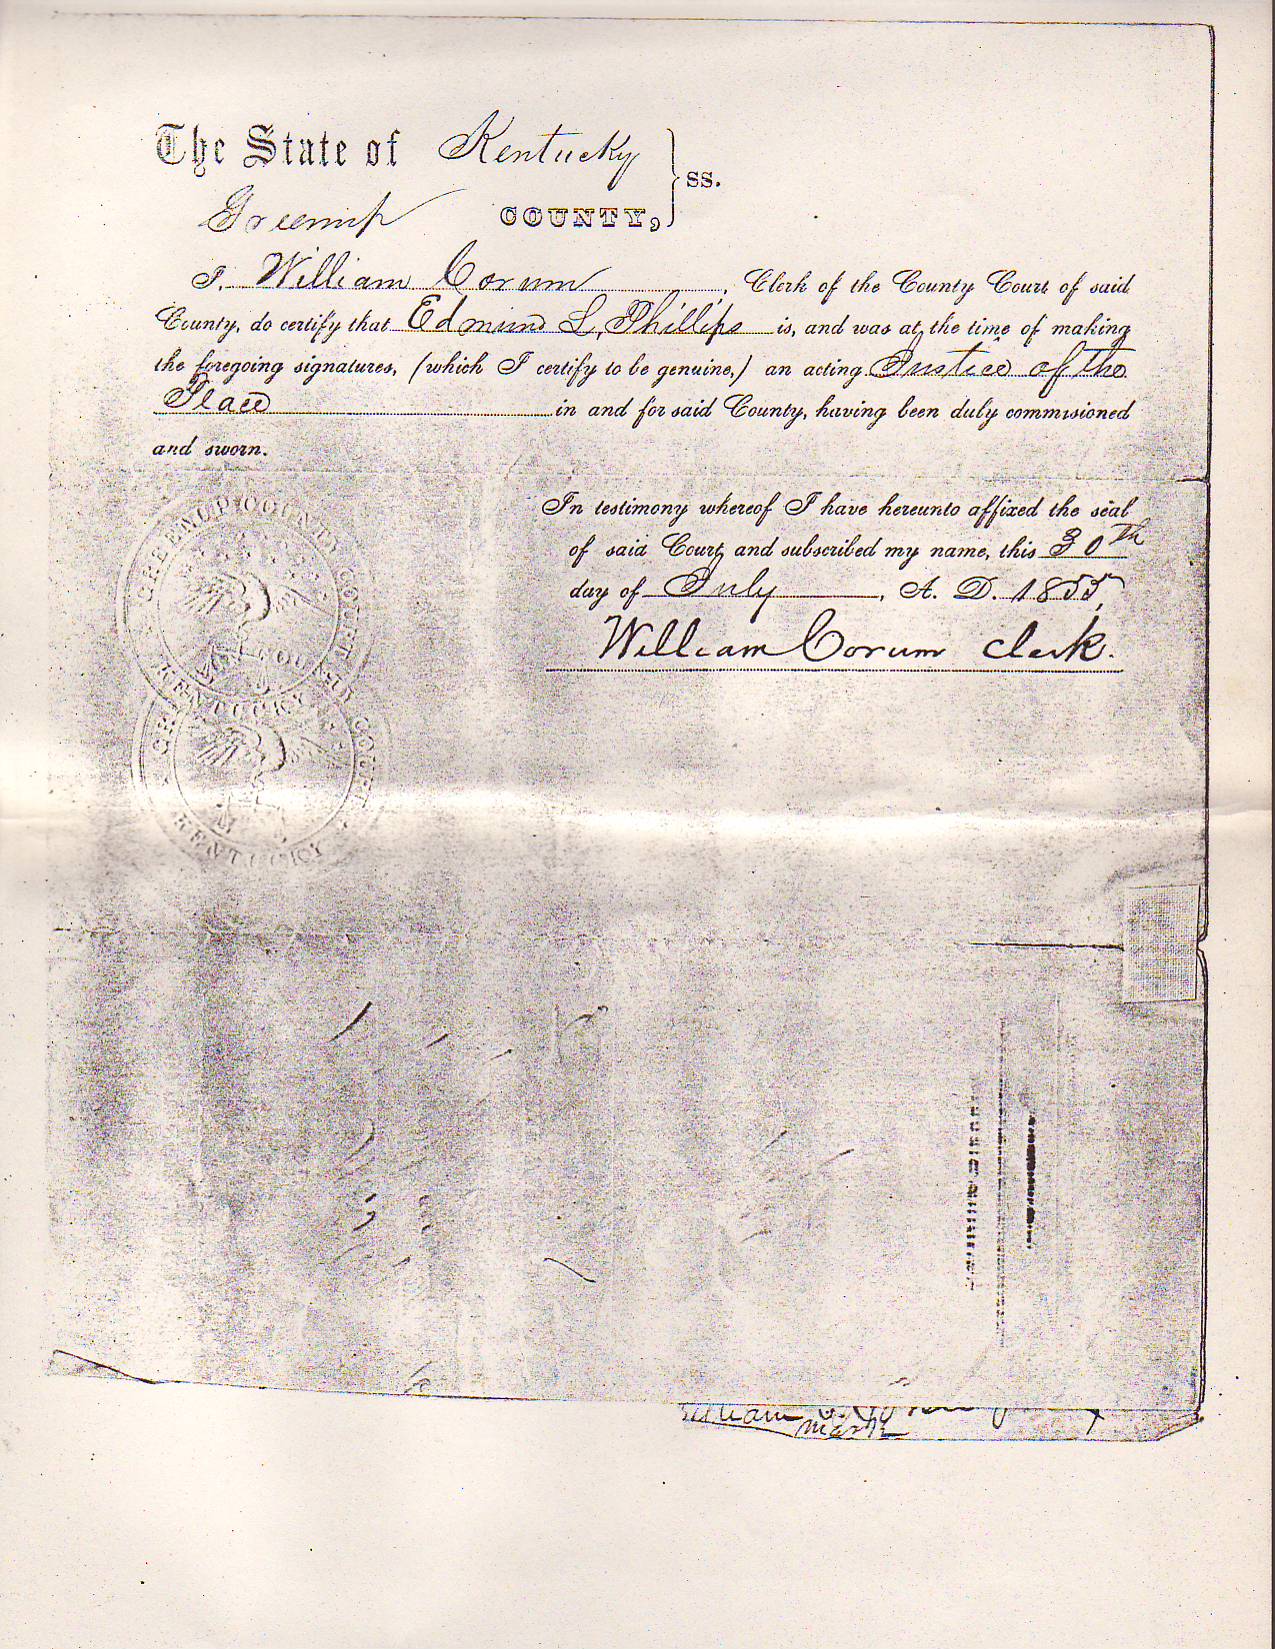 The State of Kentucky
Greenup COUNTY, } ss.
I, William Corum, Clerk of the County Court of said
County, do certify that Edmund L, Phillips is, and was at the time of making
the foregoing signatures, (which I certify to be genuine,) an acting Justice of the
Peace in and for said County, having been duly commisioned
and sworn.
In testimony whereof I have hereunto affixed the seal
of said Court, and subscribed my name, this 30th
day of July, A. D. 1855,
William Corum Clerk.
GREENUP COUNTY COURT
KENTUCKY
COUNTY COURT
KENTUCKY
William
mark